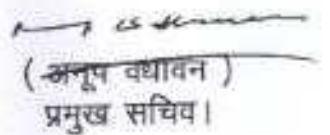 ( अनूप वधावन )
प्रमुख सचिव।